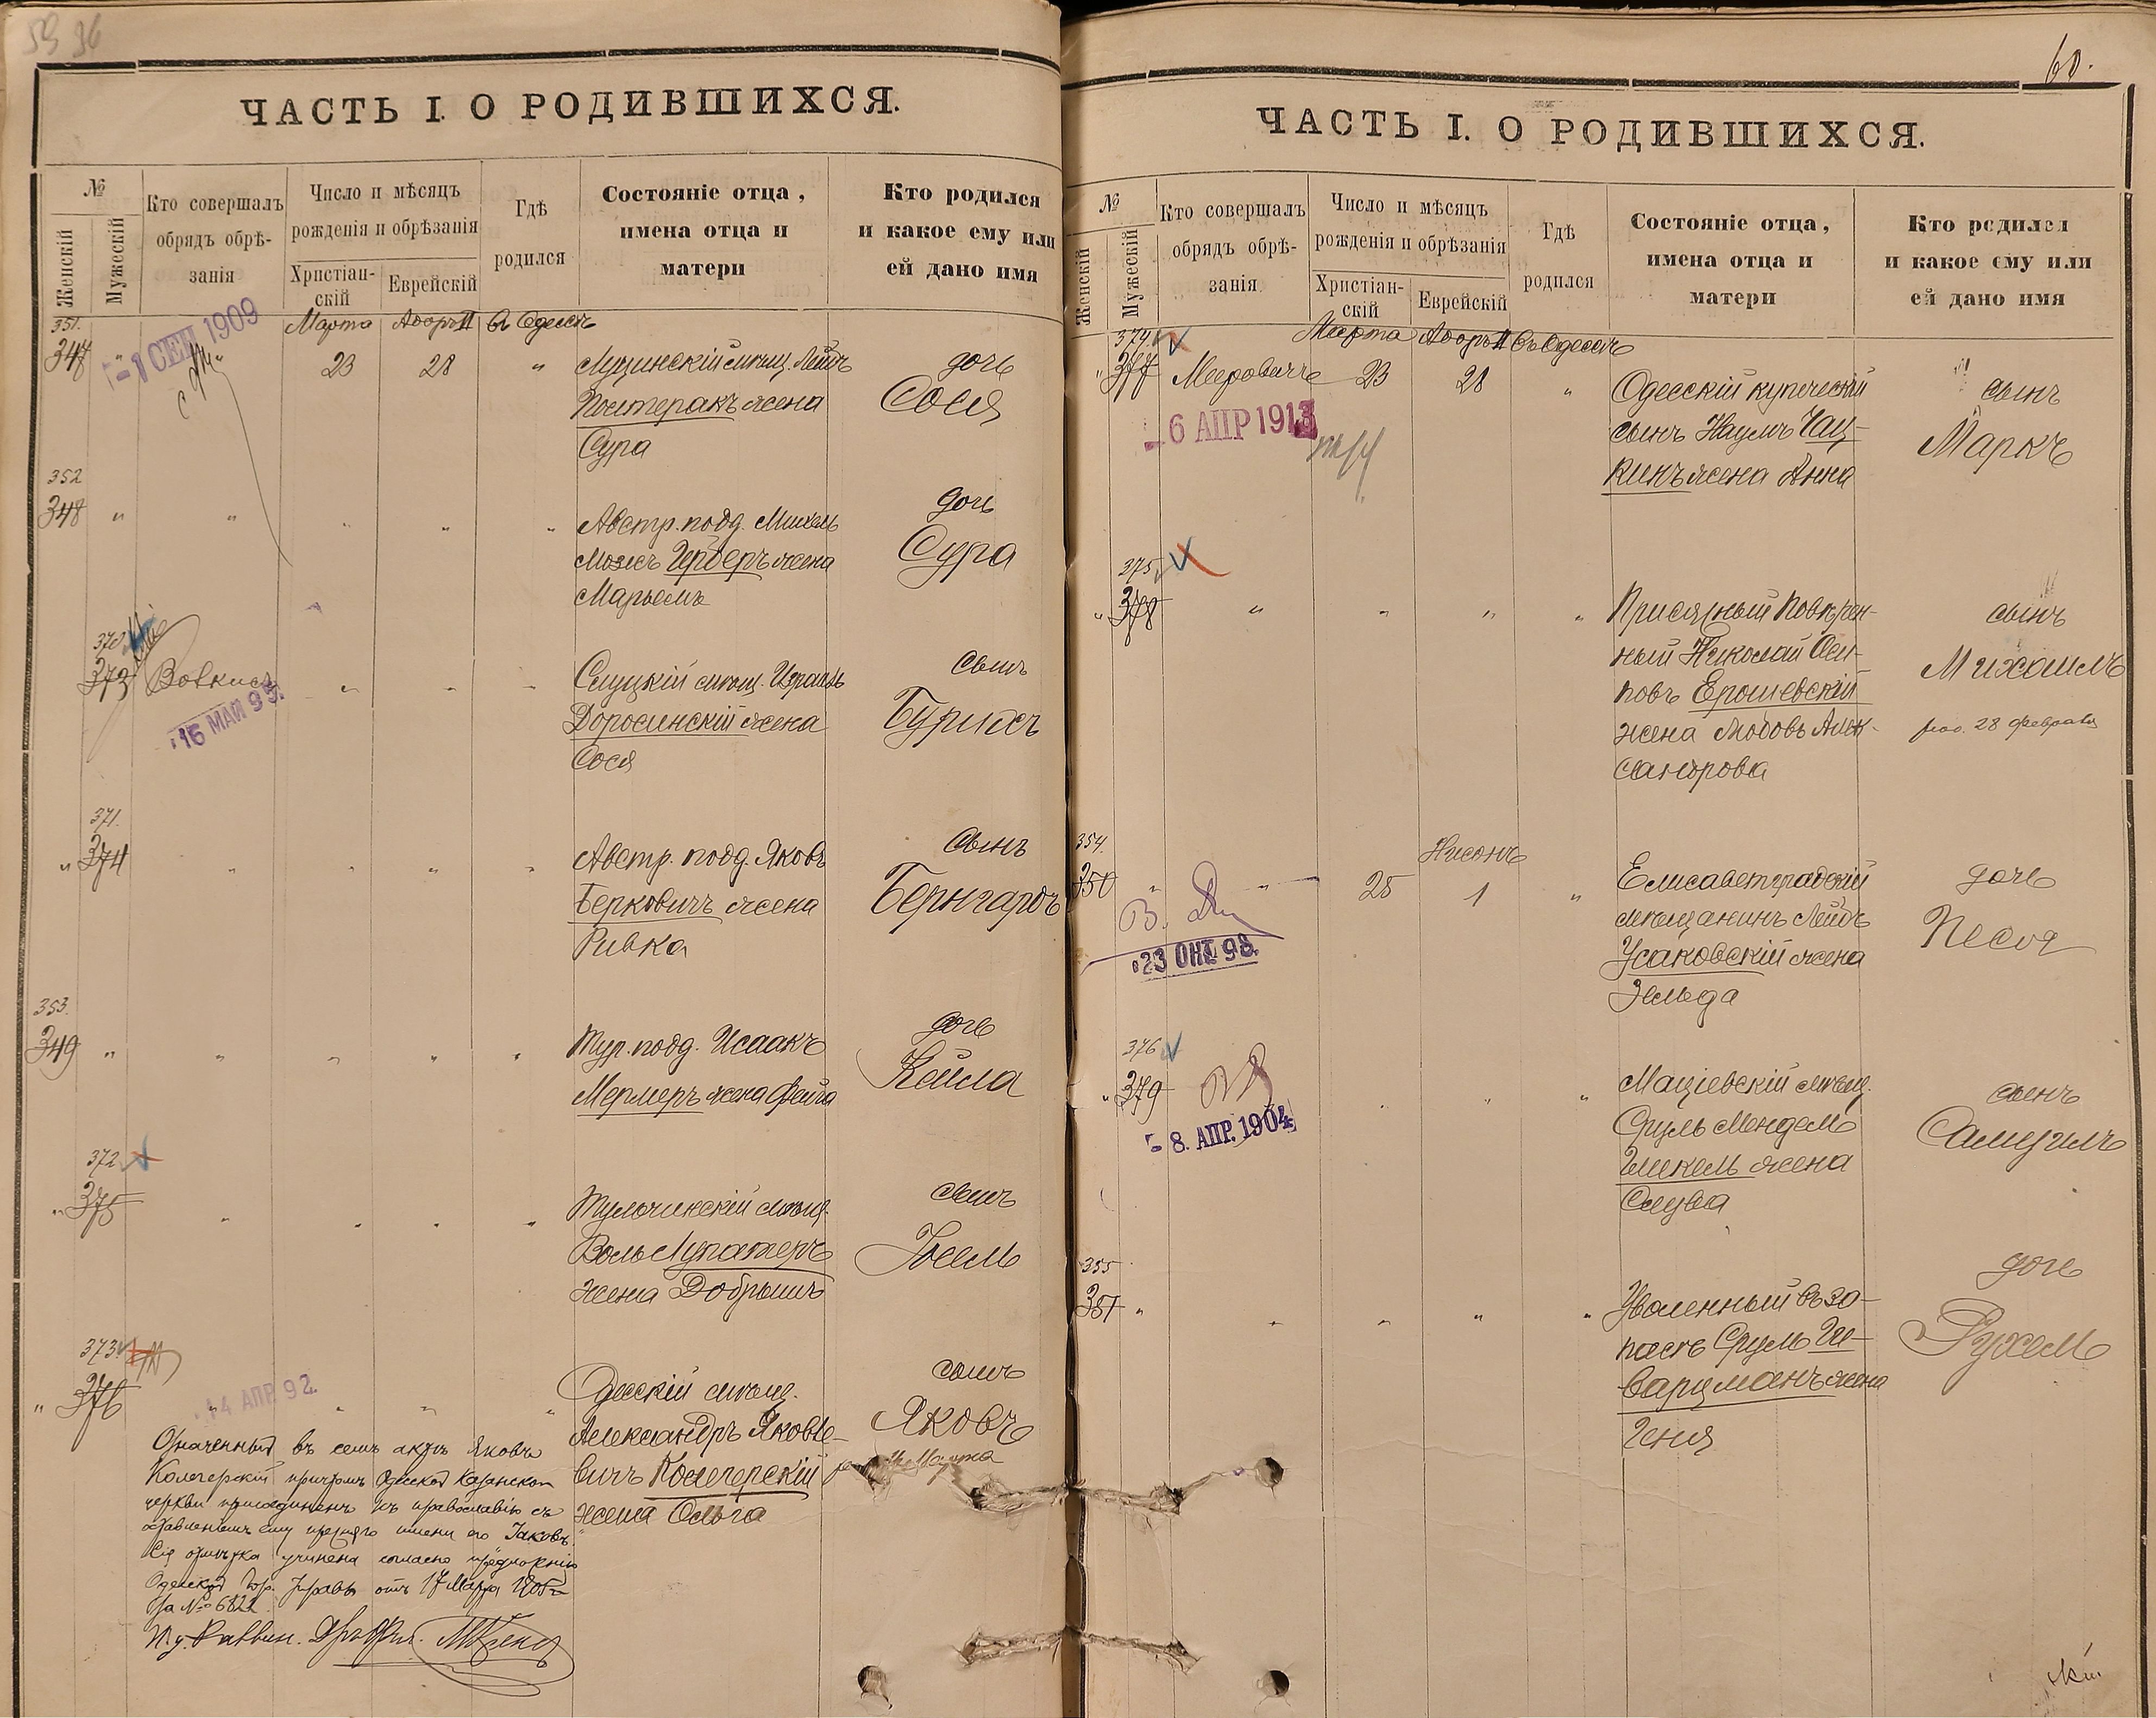 59 36
ЧАСТЬ I. О РОДИВШИХСЯ.
№
Женскій
Мужескій
Кто совершалъ
обрядъ обрѣ-
занія
Число и мѣсяцъ
рожденія и обрѣзанія
Христіан-
скій
Еврейскій
Гдѣ
родился
Состояніе отца,
имена отца и
матери
Кто родился
и какое ему или
ей дано имя
351.
Марта Адаръ II Въ Одессѣ
347 " 23 28 "
-1 СЕН 1909
мѣщ. Лейбъ
жена
Сура
дочь
Сося
352
348 " " " " "
Австр. подд. Михель
жена
Марьемъ
дочь
Сура
370
373
16 МАЙ 95.
Слуцкій мѣщ. Израиль
Доросинскій жена
Сося
сынъ
371.
" 374 " " " "
Австр. подд. Яковъ
Берковичъ жена
Ривка
сынъ
Бернгардъ
353.
349 " " " " "
Тур. подд. Исаакъ
Мермеръ жена Фейга
дочь
Кейла
372
" 375 " " " "
Тульчинскій мѣщ.
жена
сынъ
373
" 376 " " " "
14 АПР. 92.
Одесскій мѣщ.
Александръ Яковле-
вичъ
жена Ольга
сынъ
Яковъ
Означенный въ семъ актѣ Яковъ
причтомъ Одесской Казанской
церкви присоединенъ къ православію съ
оставленіемъ ему прежняго имени его Іаковъ.
Сія отмѣтка учинена согласно предложенію
Одесской Гор. Управы отъ 17 Марта 1905 г.
За №
И. д. Раввин.
60.
ЧАСТЬ I. О РОДИВШИХСЯ.
№
Женскій
Мужескій
Кто совершалъ
обрядъ обрѣ-
занія
Число и мѣсяцъ
рожденія и обрѣзанія
Христіан-
скій
Еврейскій
Гдѣ
родился
Состояніе отца,
имена отца и
матери
Кто родился
и какое ему или
ей дано имя
374
Марта Адаръ II Въ Одессѣ
" 377 Мееровичъ 23 28 "
-6 АПР 1913
Одесскій купеческій
сынъ Наумъ Чац-
кинъ жена Анна
сынъ
Маркъ
375
" 378 " " " "
Присяжный Повѣрен-
ный Николай Оси-
повъ Ерошевскій
жена Любовь Алек-
сандрова
сынъ
Михаилъ
28 февраля
354.
Нисонъ
350 " " 25 1 "
23 ОКТ. 98.
Елисаветградскій
мѣщанинъ Лейбъ
Усаковскій жена
Зельда
дочь
Песя
376
" 379 " " "
8. АПР. 1904
Маціевскій мѣщ.
Сруль Мендель
жена
Слува
сынъ
Самуилъ
355
351 " " " " "
Уволенный въ за-
пасъ Сруль Ш-
варцманъ жена
Геня
дочь
Рухель